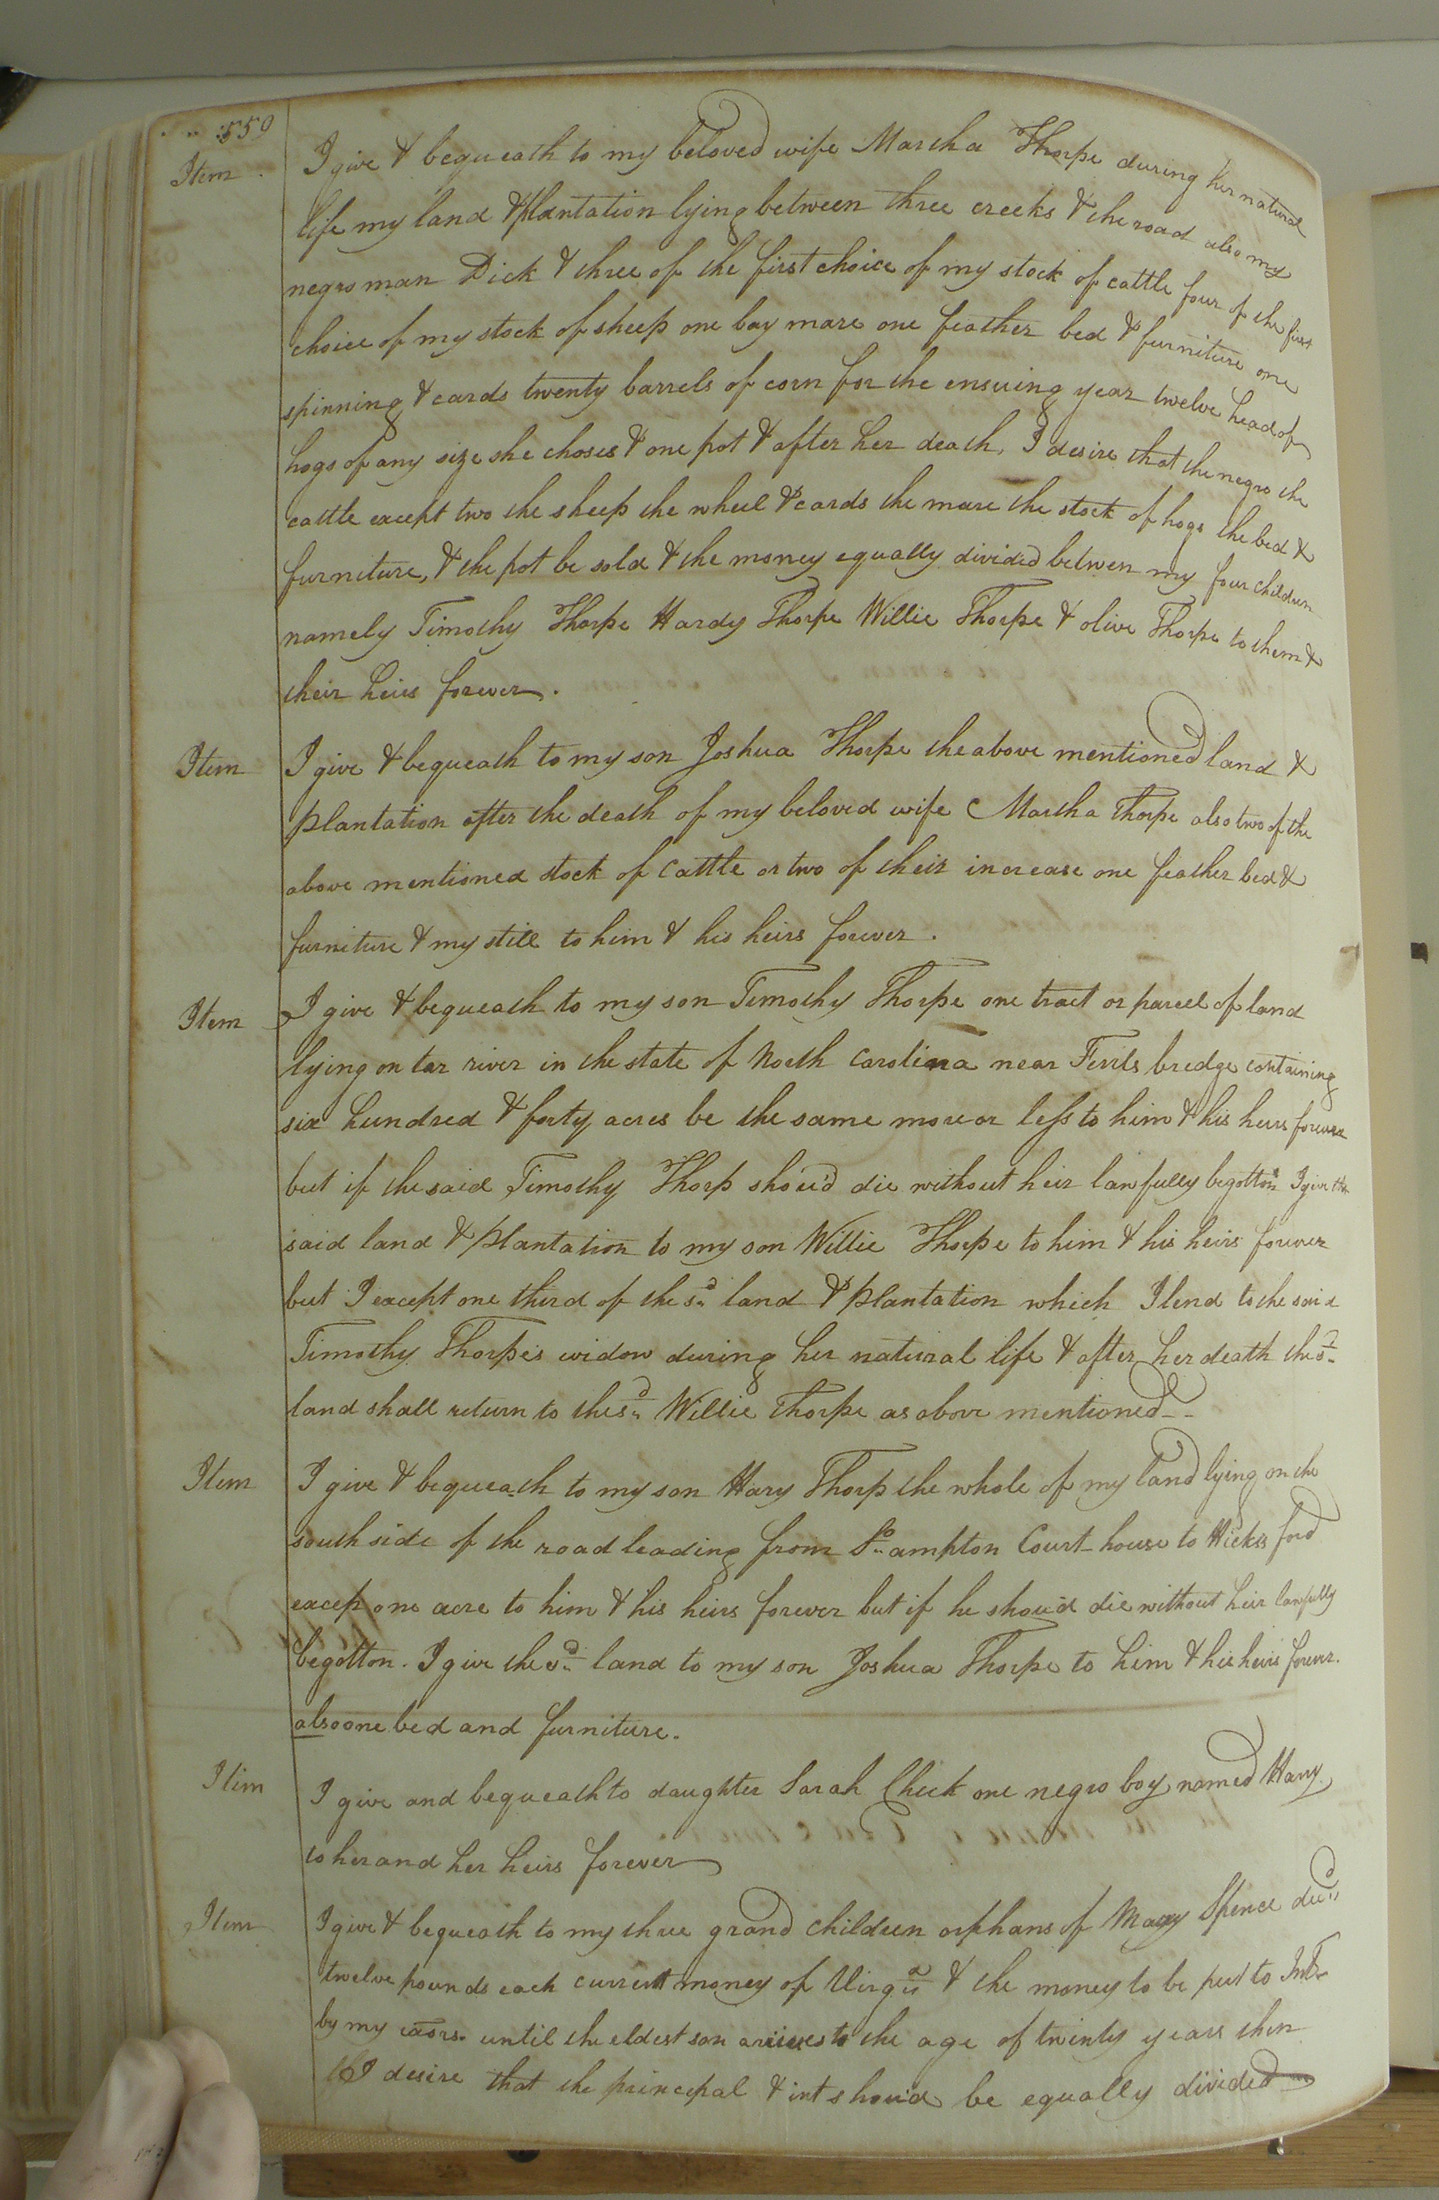 559
Item I give & bequeath to my beloved wife Martha Thorpe during her natural
life my land & plantation lying between three creeks & the road also my
negro man Dick & three of the first choice of my stock of cattle four of the first
choice of my stock of sheep one bay mare one feather bed & furniture one
spinning & cards twenty barrels of corn for the ensuing year twelve head of
hogs of any size she choses & one pot & after her death, I desire that the negro the
cattle except two the sheep the wheel & cards the mare the stock of hogs the bed &
furniture, & the pot be sold & the money equally divided between my four children
namely Timothy Thorpe Hardy Thorpe Willie Thorpe & olive Thorpe to them &
their heirs forever.
Item I give & bequeath to my son Joshua Thorpe the above mentioned land &
plantation after the death of my beloved wife Martha Thorpe also two of the
above mentioned stock of cattle or two of their increase one feather bed &
furniture & my still to him & his heirs forever.
Item I give & bequeath to my son Timothy Thorpe one tract or parcel of land
lying on tar river in the state of North Carolina near bredge containing
six hundred & forty acres be the same more or less to him & his heirs forever
but if the said Timothy Thorp shou'd die without heir lawfully begotton I give the
said land & plantation to my son Willie Thorpe to him & his heirs forever
but I except one third of the sd. land & plantation which I lend to the said
Timothy Thorpes widow during her natural life & after her death the sd.
land shall return to the sd. Willie Thorpe as above mentioned --
Item I give & bequeath to my son Hary Thorp the whole of my land lying on the
south side of the road leading from So.ampton Court-house to Hicks ford
excep one acre to him & his heirs forever but if he shou'd die without heir lawfully
begotton. I give the sd. land to my son Joshua Thorpe to him & his heirs forever.
also one bed and furniture.
Itim I give and bequeath to daughter Sarah Cheek one negro boy named Harry
to her and her heirs forever
Item I give & bequeath to my three grand children orphans of Mary Spence decd.
twelve pounds each current money of Virga. & the money to be put to Intr.
by my exors. until the eldest son arrives to the age of twenty years then
I desire that the principal & int shou'd be equally divided